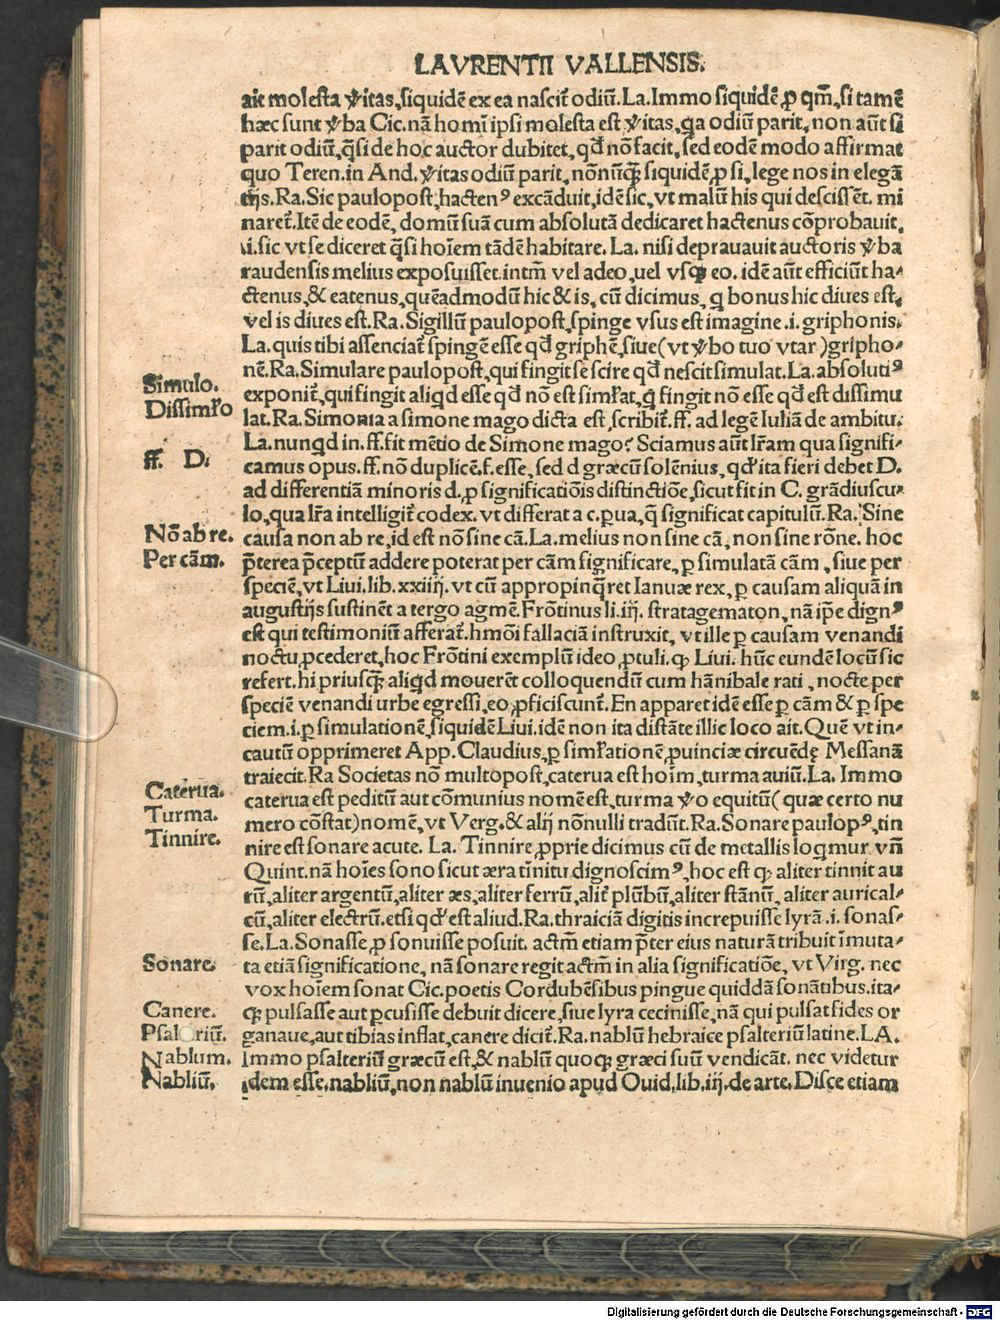 LAVRENTII VALLENSIS.
ait molesta ꝟitas, siquidē ex ea nascit̃ odiū. La. Immo siquidē ꝓ qm̃, si tamē
hæc sunt ꝟba Cic. nā homī ipsi molesta est ꝟitas, ꝗa odiū parit, non aūt si
parit odiū, q̃si de hoc auctor dubitet, qđ nō facit, sed eodē modo affirmat
quo Teren. in And. ꝟitas odiū parit, nōnūꝗ̃ siquidē, ꝓ si, lege nos in elegā
tijs. Ra. Sic paulopost, hactenꝰ excāduit, idē sic, vt malū his qui descissēt. mi
naret̃. Itē de eodē, domū suā cum absolutā dedicaret hactenus cōprobauit,
.i. sic vt se diceret q̃si hoīem tādē habitare. La. nisi deprauauit auctoris ꝟba
raudensis melius exposuisset. intm̃ vel adeo, uel vsqꝫ eo. idē aūt efficiūt ha-
ctenus, & eatenus, quēadmodū hic & is, cū dicimus, ꝙ bonus hic diues est,
vel is diues est. Ra. Sigillū paulopost, spinge vsus est imagine .i. griphonis.
La. quis tibi assenciat̃ spingē esse qđ griphē, siue (vt ꝟbo tuo vtar) gripho-
nē. Ra. Simulare paulopost, qui fingit se scire qđ nescit simulat. La. absolutiꝰ
Simulo.
exponit̃, qui fingit aliꝗd esse qđ nō est siml̃at, ꝗ fingit nō esse qđ est dissimu
Dissiml̃o
lat. Ra. Simonia a simone mago dicta est, scribit̃. ff. ad legē Iuliā de ambitu.
La. nunꝗd in. ff. fit mētio de Simone mago? Sciamus aūt lr̃am qua signifi-
ff. D.
camus opus. ff. nō duplicē. f. esse, sed d græcū solēnius, qđ ita fieri debet D.
ad differentiā minoris d. ꝓ significatiōis distinctiōe, sicut fit in C. grādiuscu-
lo, qua lr̃a intelligit̃ codex. vt differat a c. ꝑua, q̃ significat capitulū. Ra. Sine
Nō ab re.
causa non ab re, id est nō sine cā. La. melius non sine cā, non sine rōne. hoc
Per cām.
p̃terea p̃ceptū addere poterat per cām significare, ꝑ simulatā cām, siue per
speciē, vt Liui. lib. xxiiij. vt cū appropinq̃ret Ianuæ rex, ꝑ causam aliquā in
augustijs sustinēt a tergo agmē. Frōtinus li. iij. stratagematon, nā ip̃e dignꝰ
est qui testimoniū afferat̃. hmōi fallaciā instruxit, vt ille ꝑ causam venandi
noctu, ꝓcederet, hoc Frōtini exemplū ideo, ꝓtuli. ꝙ Liui. hūc eundē locū sic
refert. hi priusꝗ̃ aliꝗd mouerēt colloquendū cum hānibale rati, nocte per
speciē venandi urbe egressi, eo, ꝓficiscunt̃. En apparet idē esse ꝑ cām & ꝑ spe
ciem .i. ꝑ simulationē, siquidē Liui. idē non ita distāte illic loco ait. Quē vt in-
cautū opprimeret App. Claudius, ꝑ siml̃ationē, ꝓuinciæ circuēdę Messanā
traiecit. Ra Societas nō multopost, caterua est hoīm, turma auiū. La. Immo
Caterua.
caterua est peditū aut cōmunius nomē est, turma ꝟo equitū (quæ certo nu
Turma.
mero cōstat) nomē, vt Verg. & alij nōnulli tradūt. Ra. Sonare paulopꝰ, tin
Tinnire.
nire est sonare acute. La. Tinnire, ꝓprie dicimus cū de metallis loꝗmur vñ
Quint. nā hoīes sono sicut æra tīnitu dignoscimꝰ, hoc est ꝙ aliter tinnit au
rū, aliter argentū, aliter æs, aliter ferrū, alit̃ plūbū, aliter stānū, aliter aurical-
cū, aliter electrū. etsi qđ est aliud. Ra. thraiciā digitis increpuisse lyrā .i. sonas-
se. La. Sonasse, ꝓ sonuisse posuit. actm̃ etiam p̃ter eius naturā tribuit īmuta-
Sonare.
ta etiā significatione, nā sonare regit actm̃ in alia significatiōe, vt Virg. nec
vox hoīem sonat Cic. poetis Cordubēsibus pingue quiddā sonātibus. ita-
Canere.
qꝫ pulsasse aut ꝑcusisse debuit dicere, siue lyra cecinisse, nā qui pulsat fides or
Psalteriū.
ganaue, aut tibias inflat, canere dicit̃. Ra. nablū hebraice psalteriū latine. LA.
Nablum.
Immo psalteriū græcū est, & nablū quoqꝫ græci suū vendicāt. nec videtur
Nabliū.
idem esse. nabliū, non nablū inuenio apud Ouid. lib. iij. de arte. Disce etiam
Digitalisierung gefördert durch die Deutsche Forschungsgemeinschaft - DFG